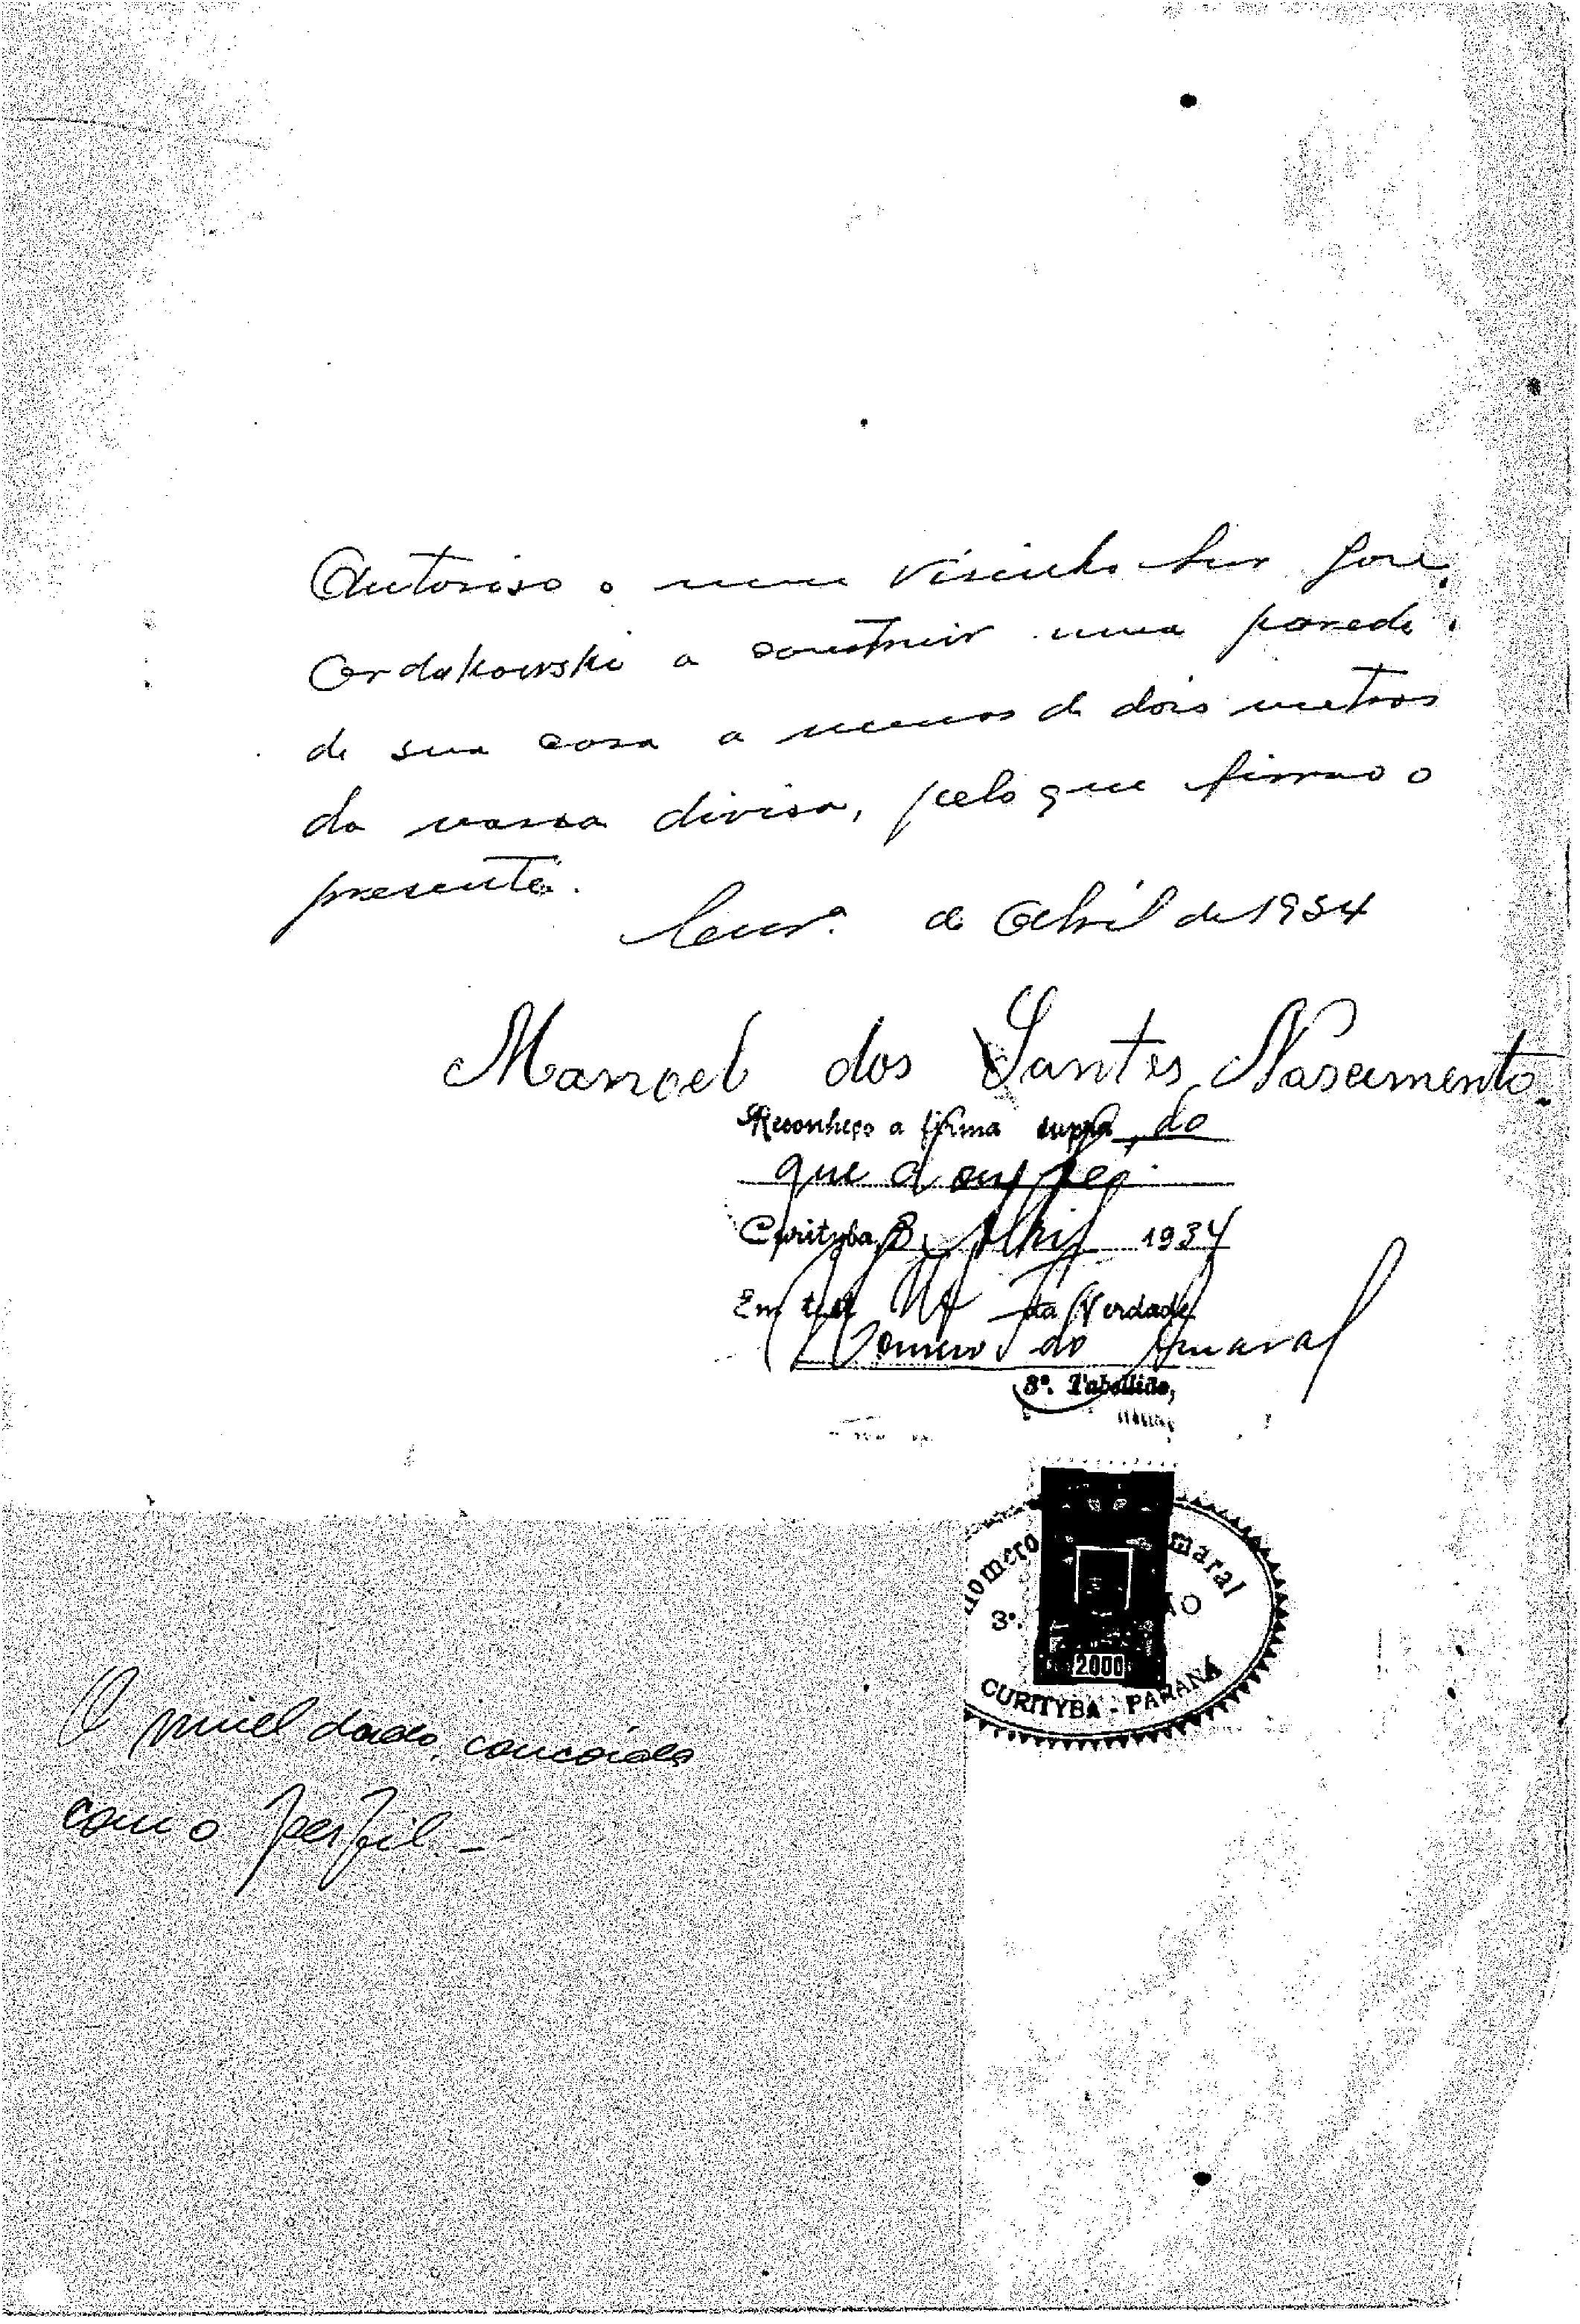 Autoriso o meu visinho Snr José
Ordakowski a construir uma parede
de sua casa a menos de dois metros
da nossa divisa, pelo que firmo o
presente.
de Abril de 1934
Manoel dos Santos Nascimento.
Reconheço a firma supra, do
que dou fé.
Curityba, 8, Abril 1934
Em test da Verdade
Homero do Amaral
3º. Tabellião,
Homero maral
3º. ÃO
2000
CURITYBA - PARANÁ
O nivel dado, concorda
com o perfil.-